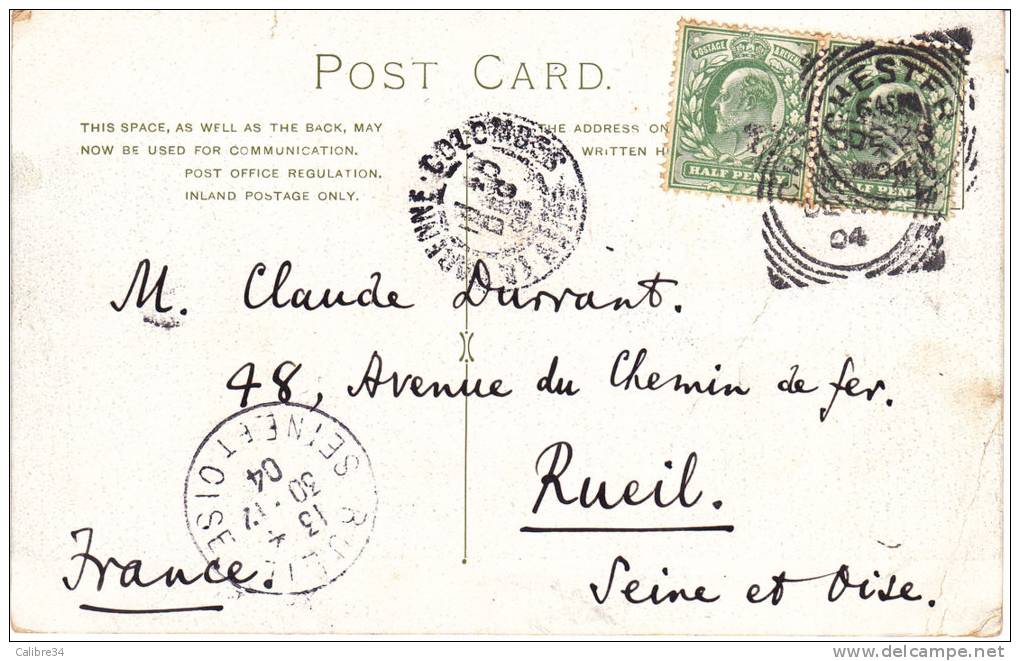 POST CARD.
THIS SPACE, AS WELL AS THE BACK, MAY
NOW BE USED FOR COMMUNICATION.
POST OFFICE REGULATION.
INLAND POSTAGE ONLY.
THE ADDRESS ON
WRITTEN H
POSTAGE & REVENUE
HALF PENNY
HALF PENN
CHESTER
04
COLOMBES
M. Claude Durrant.
48, Avenue du Chemin de fer.
Rueil.
Seine et Oise.
France.
RUEIL
SEINE ET OISE
13
30 - 12
04
Calibre34
www.delcampe.net